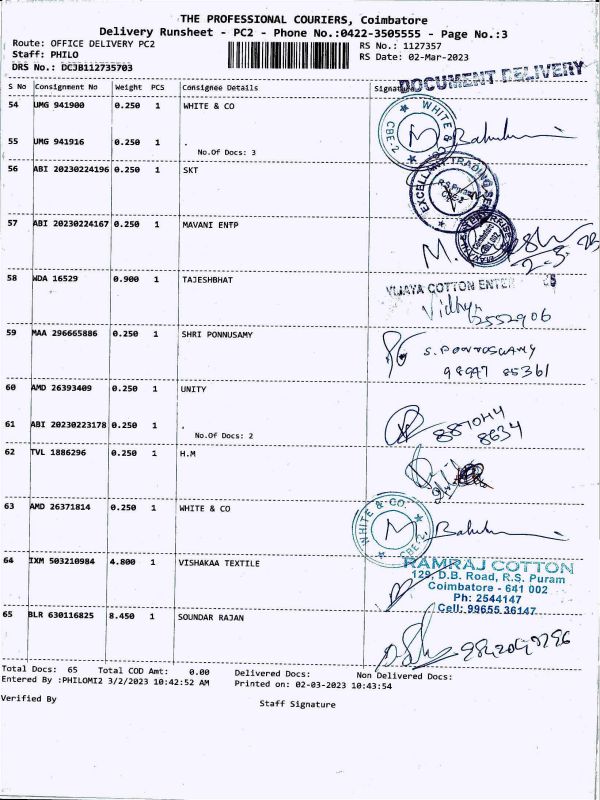 THE PROFESSIONAL COURIERS, Coimbatore
Delivery Runsheet - PC2 - Phone No.:0422-3505555 - Page No.:3
Route: OFFICE DELIVERY PC2
Staff: PHILO
DRS No.: DC3B112735703
RS No.: 1127357
RS Date: 02-Mar-2023
DOCUMENT DELIVERY
S No Consignment No Weight PCS Consignee Details Signature
54 UMG 941900 0.250 1 WHITE & CO
WHITE & CO
CBE-2
55 UMG 941916 0.250 1 .
No.Of Docs: 3
56 ABI 20230224196 0.250 1 SKT
EXCELLANT TRADING
57 ABI 20230224167 0.250 1 MAVANI ENTP
2-3-23
58 WDA 16529 0.900 1 TAJESHBHAT
VIJAYA COTTON ENTER
Vidhya
2552906
59 MAA 296665886 0.250 1 SHRI PONNUSAMY
S. PONNUSWAMY
98947 85361
60 AMD 26393409 0.250 1 UNITY
61 ABI 20230223178 0.250 1 .
No.Of Docs: 2
8634
62 TVL 1886296 0.250 1 H.M
63 AMD 26371814 0.250 1 WHITE & CO
WHITE & CO.
CBE-2
64 IXM 503210984 4.800 1 VISHAKAA TEXTILE
RAMRAJ COTTON
129, D.B. Road, R.S. Puram
Coimbatore - 641 002
Ph: 2544147
Cell: 99655 36147
65 BLR 630116825 8.450 1 SOUNDAR RAJAN
Total Docs: 65 Total COD Amt: 0.00 Delivered Docs: Non Delivered Docs:
Entered By :PHILOMI2 3/2/2023 10:42:52 AM Printed on: 02-03-2023 10:43:54
Verified By
Staff Signature